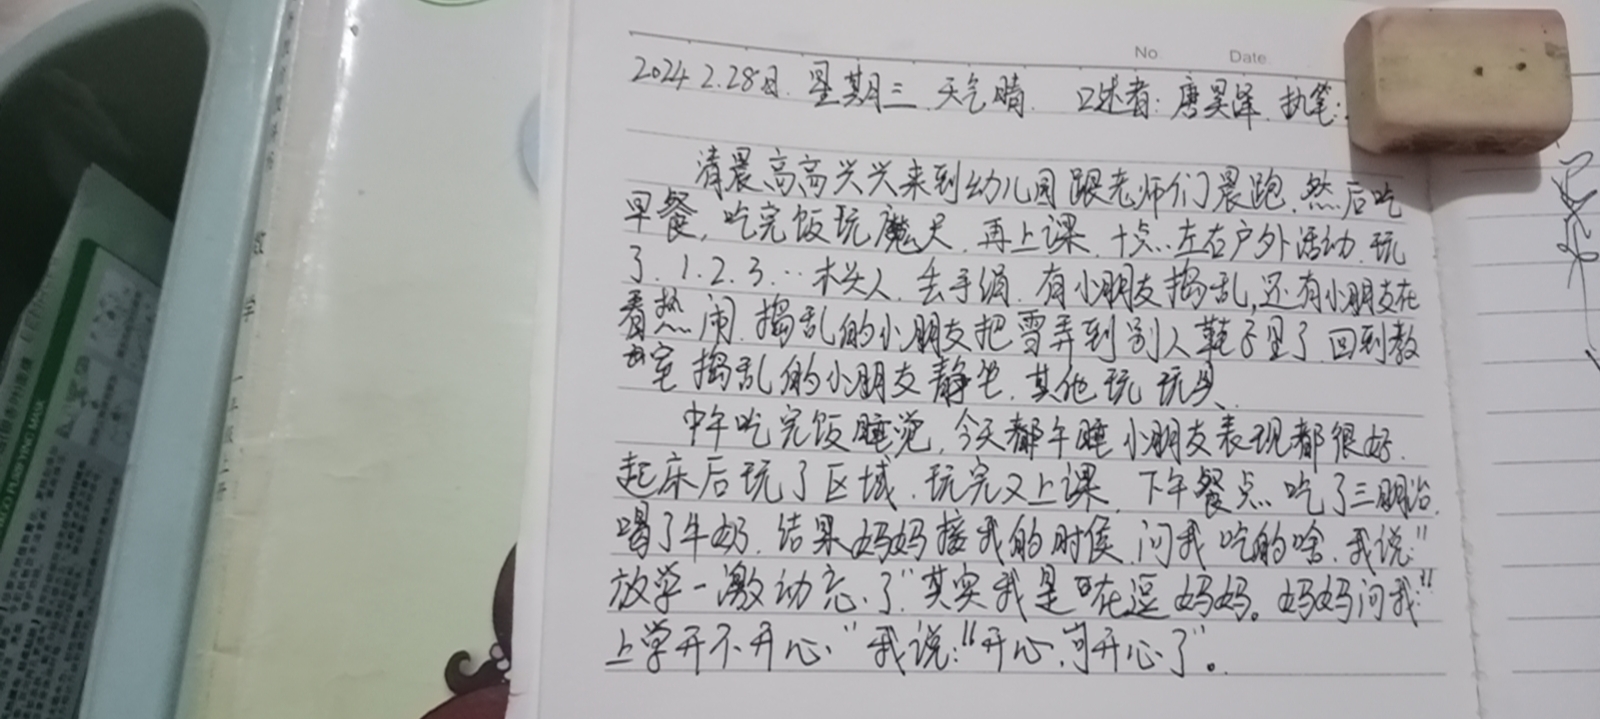 No
Date
2024 2.28日. 星期三. 天气晴. 口述者: 唐昊泽. 执笔:
清晨高高兴兴来到幼儿园跟老师们晨跑. 然后吃
早餐, 吃完饭玩魔尺. 再上课. 十点左右户外活动. 玩
了. 1. 2. 3… 木头人. 丢手绢. 有小朋友捣乱, 还有小朋友在
看热闹. 捣乱的小朋友把雪弄到别人鞋子里了 回到教
室 捣乱的小朋友静坐. 其他玩 玩具、
中午吃完饭睡觉, 今天都午睡 小朋友表现都很好.
起床后玩了区域. 玩完又上课. 下午餐点 吃了三明治.
喝了牛奶. 结果妈妈接我的时侯. 问我吃的啥. 我说:"
放学一激动忘了"其实我是在逗妈妈。妈妈问我"
上学开不开心"我说:"开心, 可开心了"。
学
一年级上册